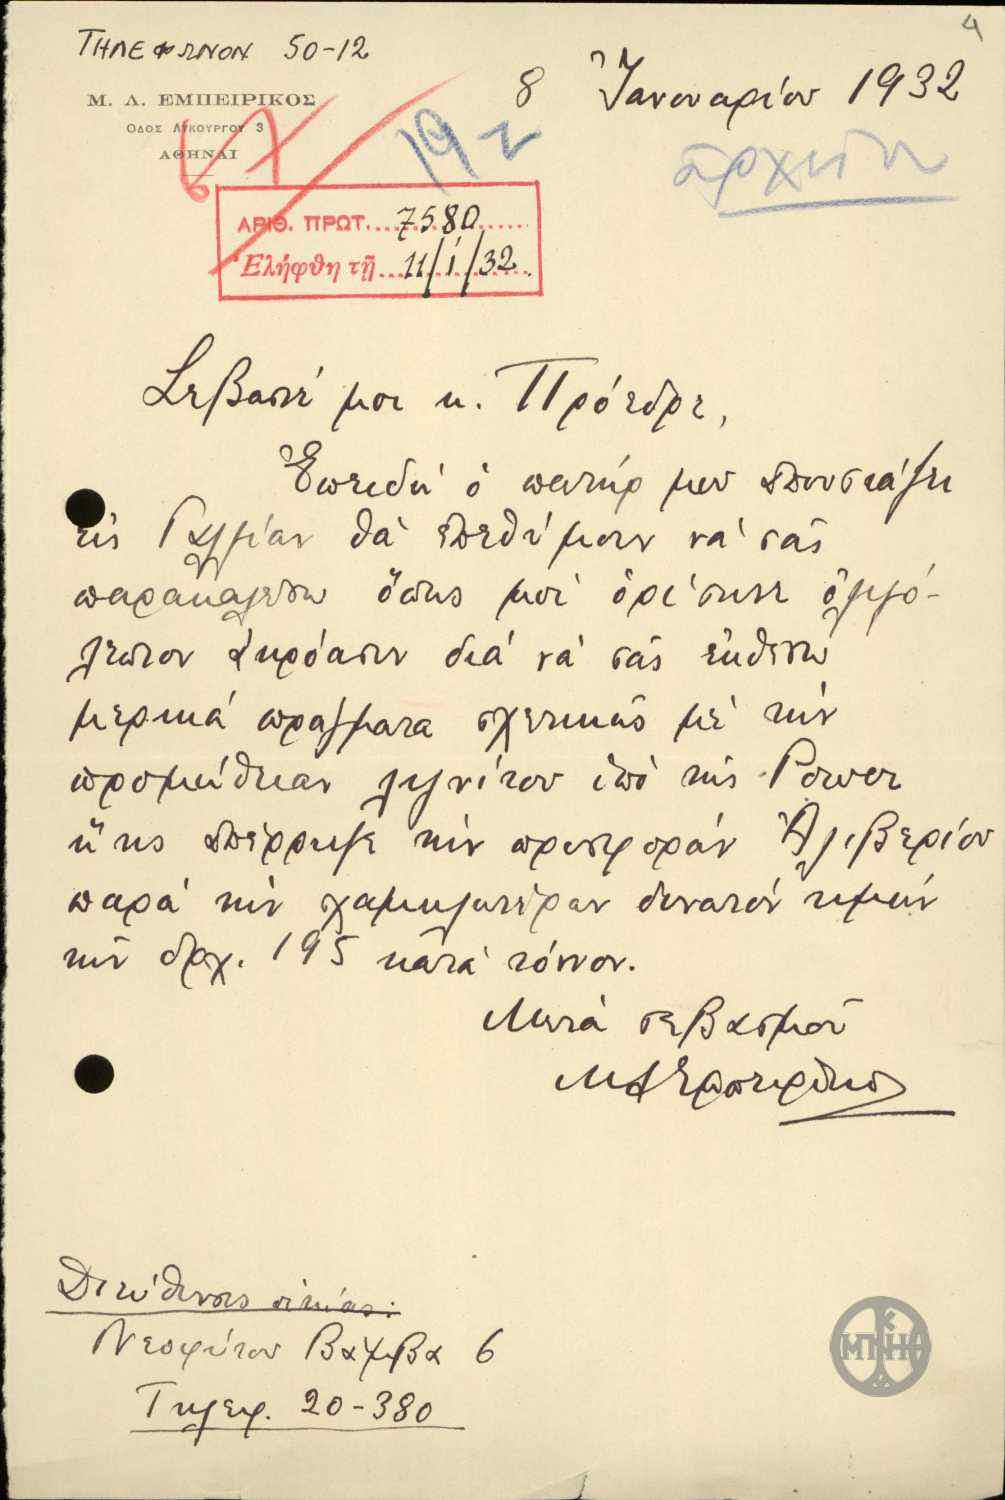 4
ΤΗΛΕΦΩΝΟΝ 50-12
Μ. Λ. ΕΜΠΕΙΡΙΚΟΣ
ΟΔΟΣ ΛΥΚΟΥΡΓΟΥ 3
ΑΘΗΝΑΙ
8 Ἰανουαρίου 1932
ἀρχεῖον
ΑΡΙΘ. ΠΡΩΤ. 7580
Ἐλήφθη τῇ 11/1/32
Σεβαστέ μοι κ. Πρόεδρε,
Ἐπειδὴ ὁ πατήρ μου ἀπουσιάζει
εἰς Γαλλίαν θὰ ἐπεθύμουν νὰ σᾶς
παρακαλέσω ὅπως μοὶ ὁρίσητε ὀλιγό-
λεπτον ἀκρόασιν διὰ νὰ σᾶς ἐκθέσω
μερικὰ πράγματα σχετικῶς μὲ τὴν
προμήθειαν λιγνίτου ὑπὸ τῆς Power
ἥτις ἀπέρριψε τὴν προσφορὰν Ἀλιβερίου
παρὰ τὴν χαμηλοτέραν δυνατὴν τιμὴν
τῶν δρχ. 195 κατὰ τόννον.
Μετὰ σεβασμοῦ
ΜΛΕμπειρίκος
Διεύθυνσις οἰκίας:
Νεοφύτου Βάμβα 6
Τηλεφ. 20-380
ΜΓΝΗΑ